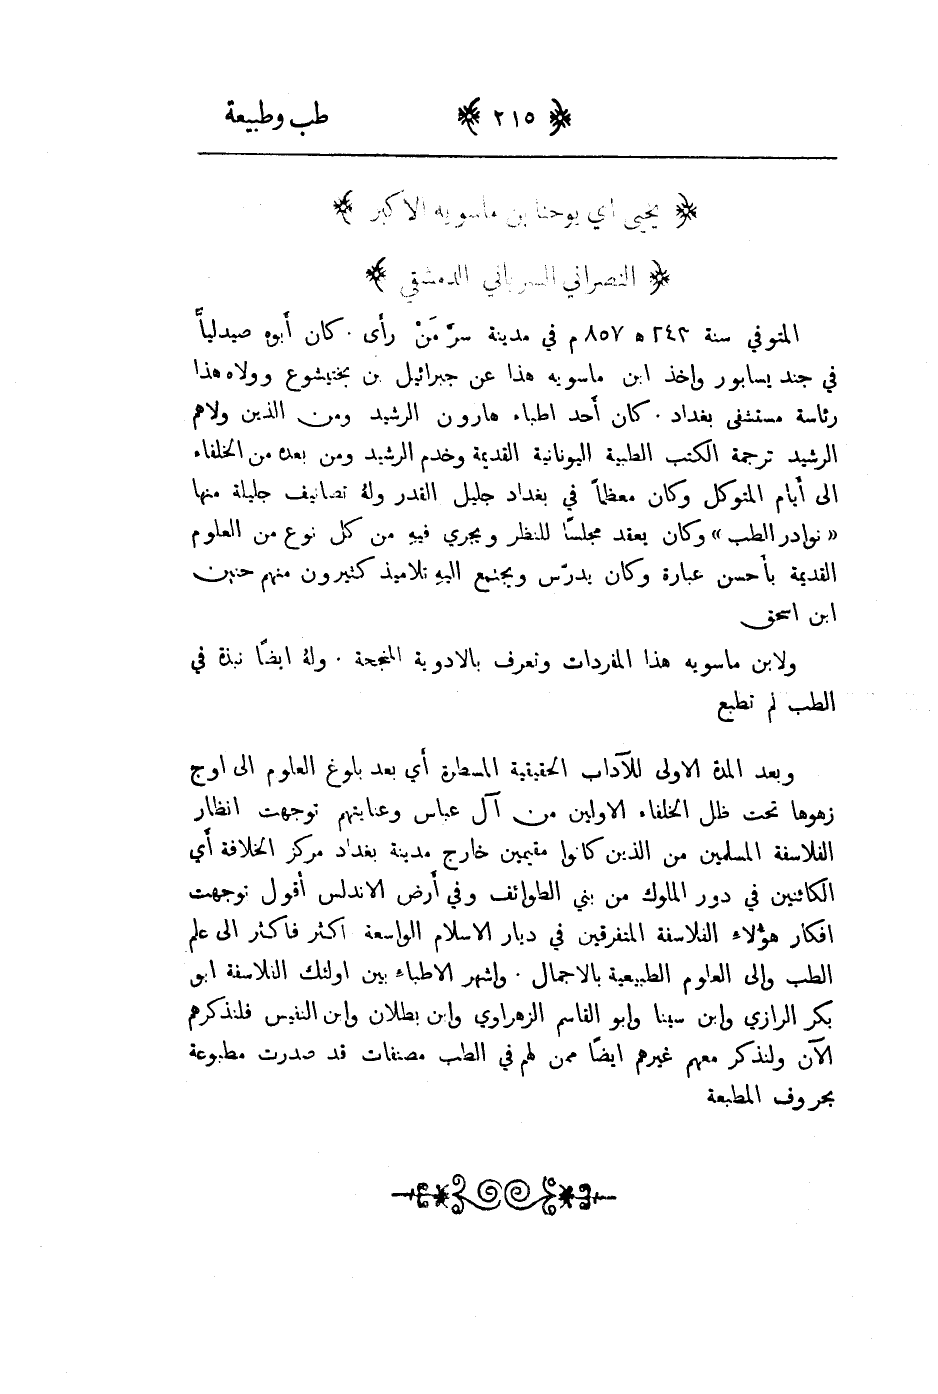 ﴿ ٢١٥ ﴾ طب وطبيعة
﴿ يحيى اي يوحنا بن ماسويه الاكبر ﴾
﴿ النصراني السرياني الدمشقي ﴾
المتوفي سنة ٢٤٣ ﻫ ٨٥٧ م في مدينة سرَّ مَنْ رأى ٠ كان أبوه صيدلياً
في جند يسابور واخذ ابن ماسويه هذا عن جبرائيل بن بختيشوع وولاه هذا
رئاسة مستشفى بغداد ٠ كان أحد اطباء هارون الرشيد ومن الذين ولاهم
الرشيد ترجمة الكتب الطبية اليونانية القديمة وخدم الرشيد ومن بعده من الخلفاء
الى أيام المتوكل وكان معظماً في بغداد جليل القدر ولهُ تصانيف جليلة منها
«نوادر الطب» وكان يعقد مجلساً للنظر ويجري فيهِ من كل نوع من العلوم
القديمة بأحسن عبارة وكان يدرّس ويجتمع اليهِ تلاميذ كثيرون منهم حنين
ابن اسحق
ولابن ماسويه هذا المفردات وتعرف بالادوية المنجحة ٠ ولهُ ايضاً نبذة في
الطب لم تطبع
وبعد المدة الاولى للآداب الحقيقية المسطرة أي بعد بلوغ العلوم الى اوج
زهوها تحت ظل الخلفاء الاولين من آل عباس وعنايتهم توجهت انظار
الفلاسفة المسلمين من الذين كانوا مقيمين خارج مدينة بغداد مركز الخلافة أي
الكائنين في دور الملوك من بني الطوائف وفي أرض الاندلس أقول توجهت
افكار هؤلاء الفلاسفة المتفرقين في ديار الاسلام الواسعة اكثر فاكثر الى علم
الطب والى العلوم الطبيعية بالاجمال ٠ واشهر الاطباء بين اولئك الفلاسفة ابو
بكر الرازي وابن سينا وابو القاسم الزهراوي وابن بطلان وابن النفيس فلنذكرهم
الآن ولنذكر معهم غيرهم ايضاً ممن لهم في الطب مصنفات قد صدرت مطبوعة
بحروف المطبعة